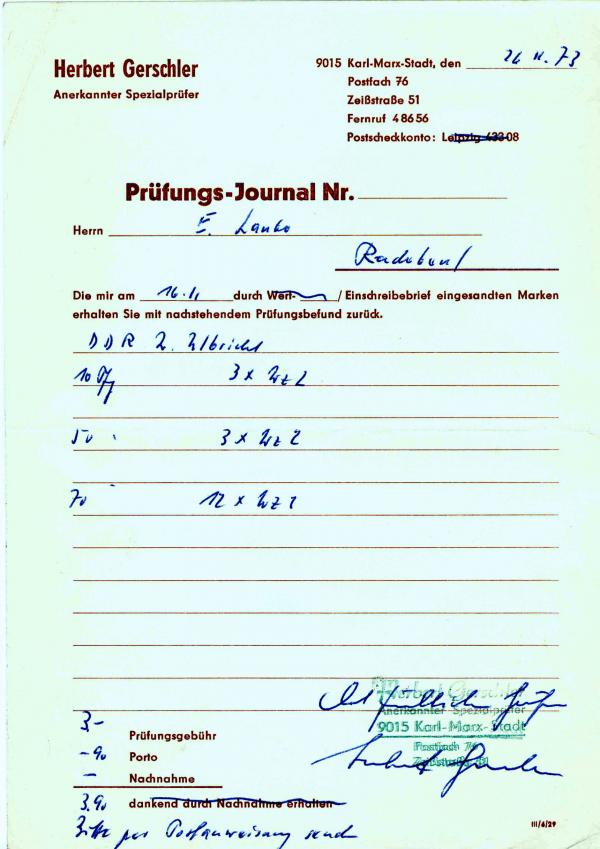 Herbert Gerschler
Anerkannter Spezialprüfer
9015 Karl-Marx-Stadt, den 26. 11. 73
Postfach 76
Zeißstraße 51
Fernruf 4 86 56
Postscheckkonto: Leipzig 433 08
Prüfungs-Journal Nr.
Herrn
Radebeul
Die mir am 16. 11. durch Wert- / Einschreibebrief eingesandten Marken
erhalten Sie mit nachstehendem Prüfungsbefund zurück.
DDR W. Ulbricht
10 Pfg 3 x Wz 2
50 " 3 x Wz 2
70 " 12 x Wz 2
Herbert Gerschler
Anerkannter Spezialprüfer
9015 Karl-Marx-Stadt
Postfach 76
Zeißstraße 51
3,- Prüfungsgebühr
-90 Porto
- Nachnahme
3.90 dankend durch Nachnahme erhalten
Bitte per Postanweisung send
III/6/29